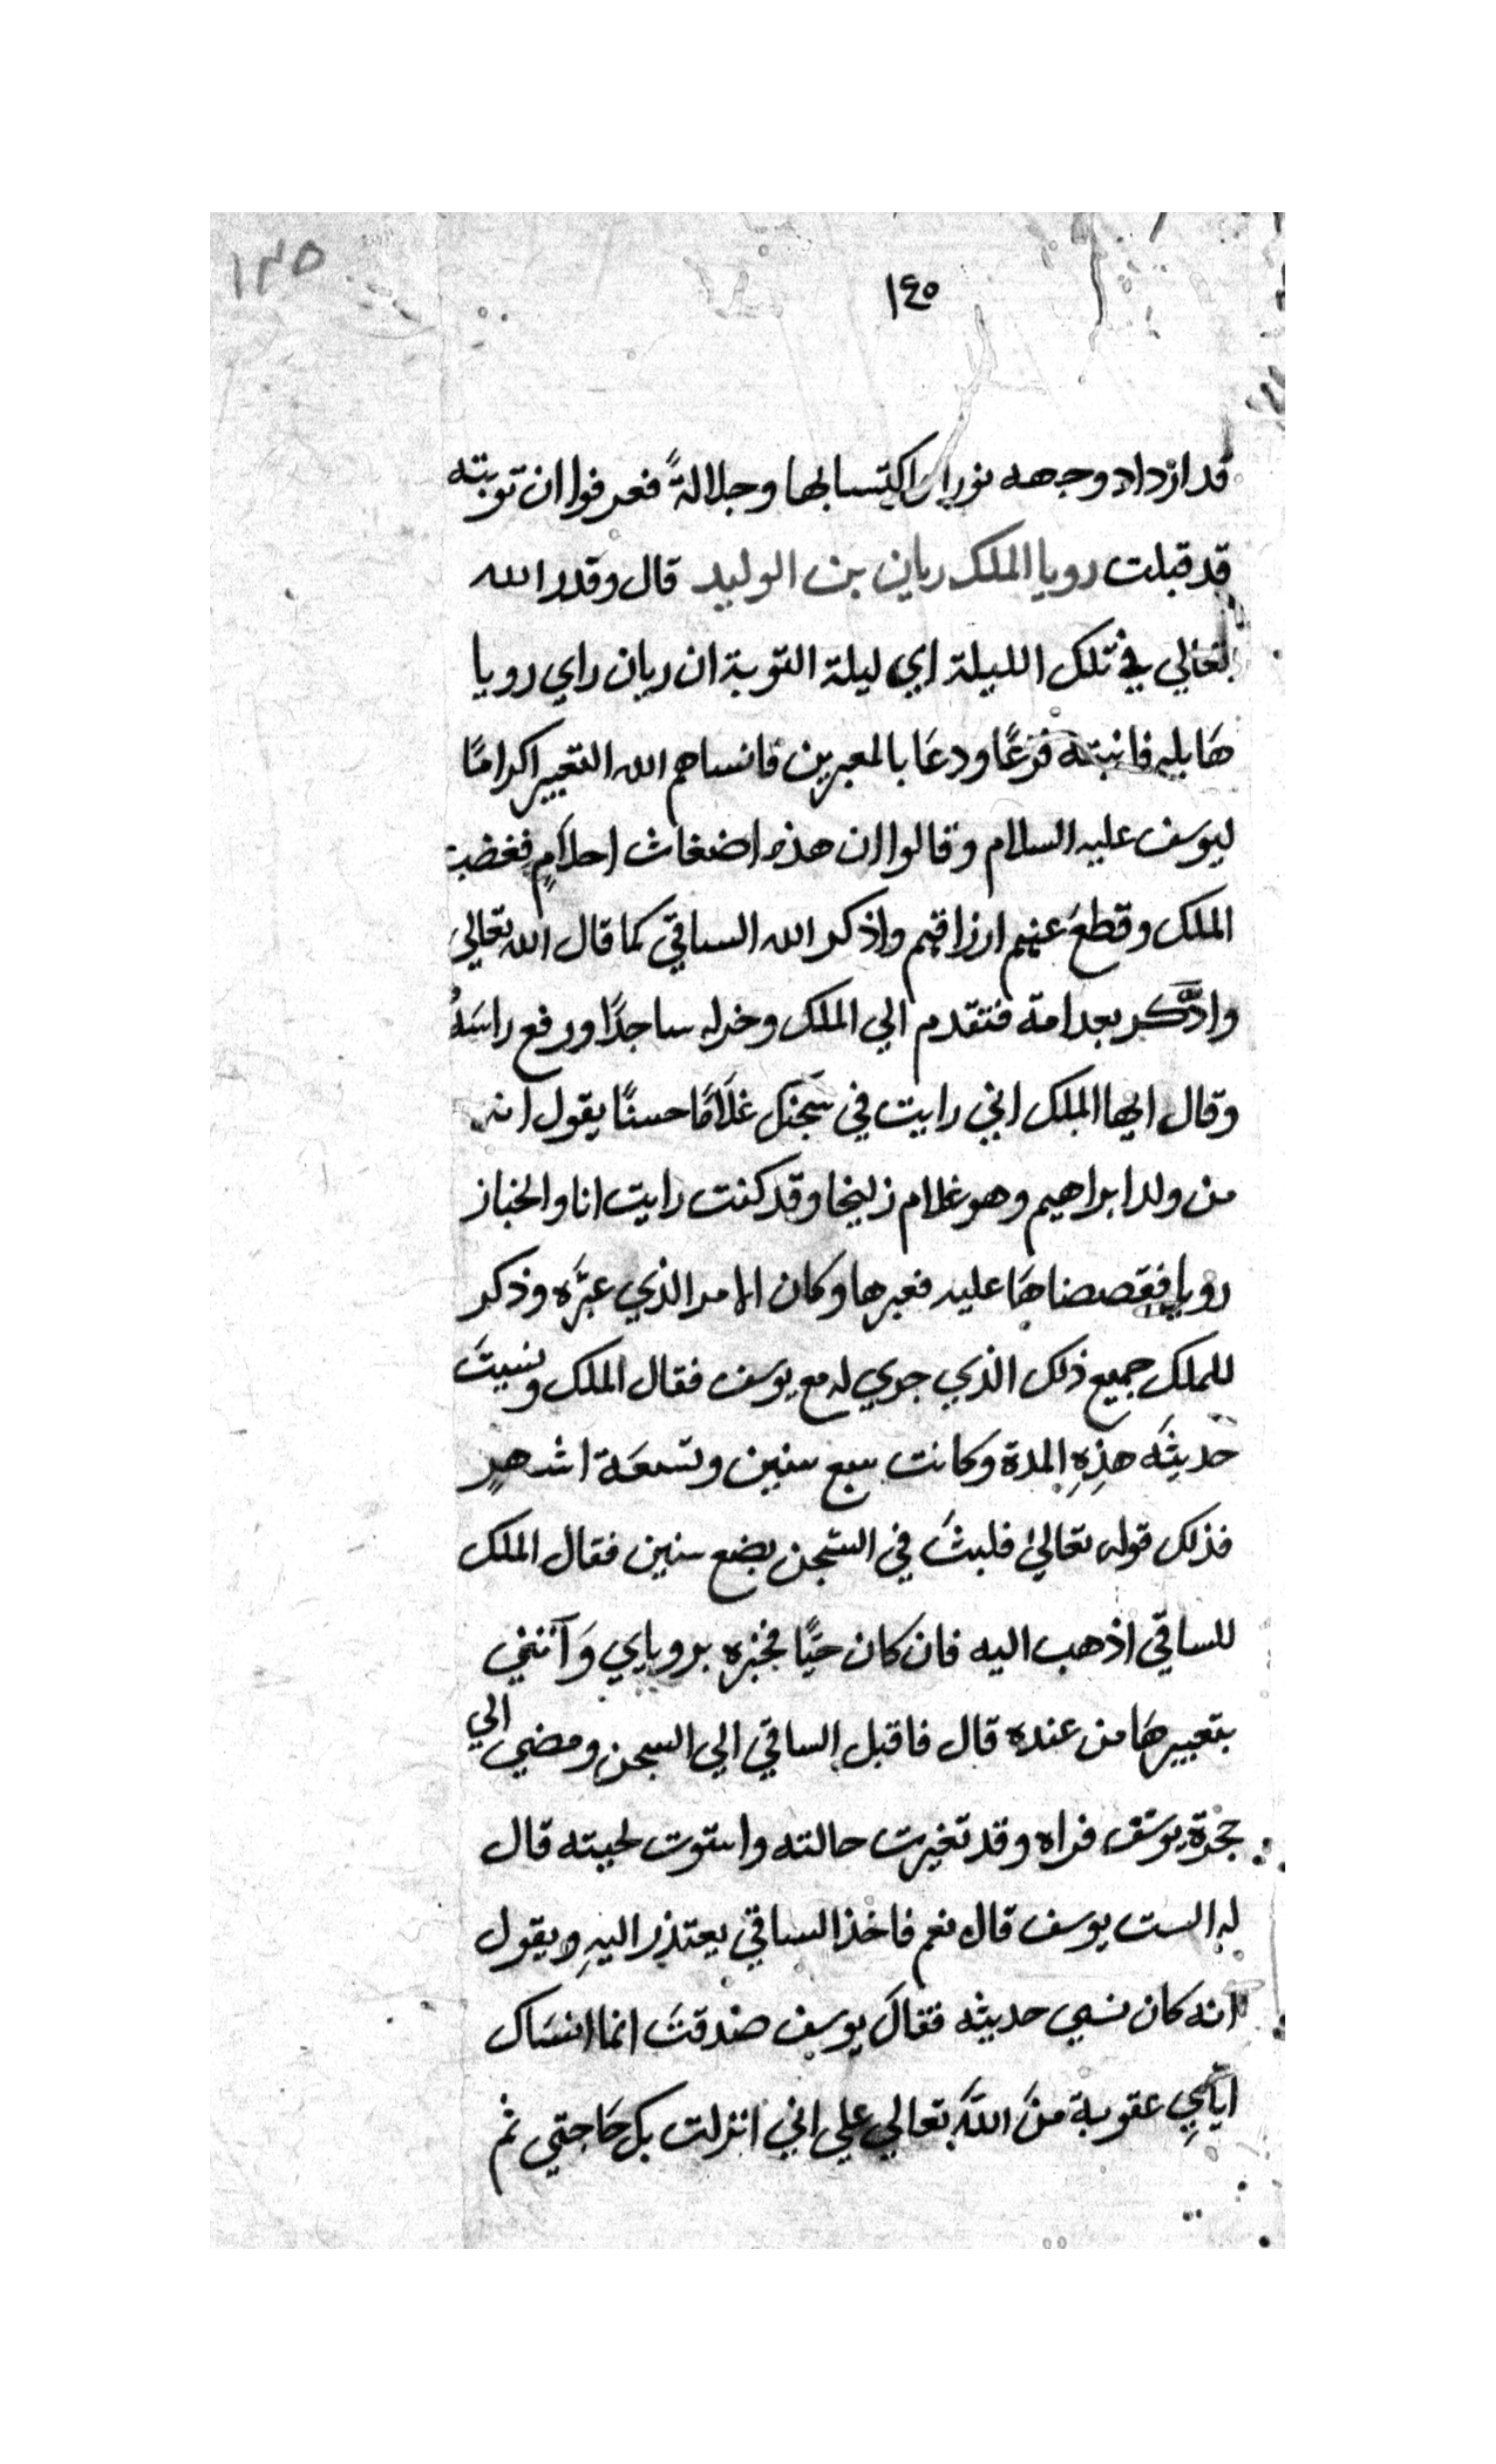 ١٣٥
١٤٥
قد ازداد وجهه نورا اكتسابها وجلالةً فعرفوا ان توبته
قد قبلت رويا الملك ريان بن الوليد قال وقدر الله
تعالي في تلك الليلة اي ليلة التوبة ان ريان راي رويا
هَايله فانبته فزعًا ودعَا بالمعبرين فانساهم الله التعبير اكرامًا
ليوسف عليه السلام وقالوا ان هذه اضغاث احلامٍ فغضب
الملك وقطع عنهم ارزاقهم واذكر الله الساقي كما قال الله تعالي
وادَّكر بعد امة فتقدم الي الملك وخر له ساجدًا ورفع راسَهُ
وقال ايها الملك اني رايت في سَجنك غلَامًا حسنًا يقول انه
من ولد ابراهيم وهو غلام زليخا وقد كنت رايت انا والخباز
رويا فقصصناهَا عليه فعبرها وكان الامر الذي عبَّره وذكر
للملك جميع ذلك الذي جري له مع يوسف فقال الملك ونسيتَ
حديثَه هذِهِ المدة وكانت سبع سنين وتسعَة اشهرٍ
فذلك قوله تعالىٰ فلبثَ في السّجن بضع سنين فقال الملك
للساقي اذهب اليه فان كان حيًّا فخبره بروياي وَآتني
بتعبيرهَا من عنده قال فاقبل الساقي الي السجن ومضي الي
حجرة يوسَف فراه وقد تغيرت حالته واستوت لحيته قال
له الست يوسف قال نعم فاخذ الساقي يعتذر اليهِ ويقول
انه كان نسي حديثه فقالَ يوسف صدقتَ انما انسَاك
ايّايِ عقوبة منَ اللهَ تعالي علي اني انزلت بك حَاجتي ثم